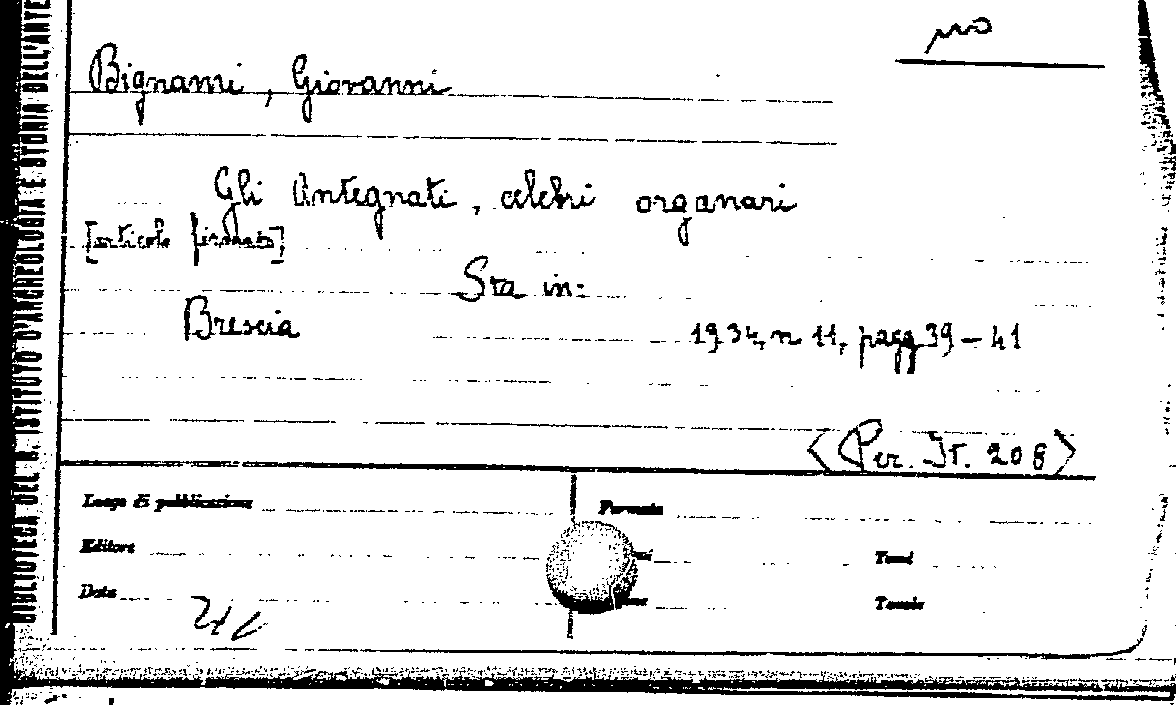 BIBLIOTECA DEL R. ISTITUTO D'ARCHEOLOGIA E STORIA DELL'ARTE
Bignami, Giovanni
Gli Antegnati, celebri organari
[articolo firmato]
Sta in:
Brescia
1934, n. 11, pagg 39-41
<Per. It. 208>
Luogo di pubblicazione
Formato
Editore
Tomi
Data
Tavole